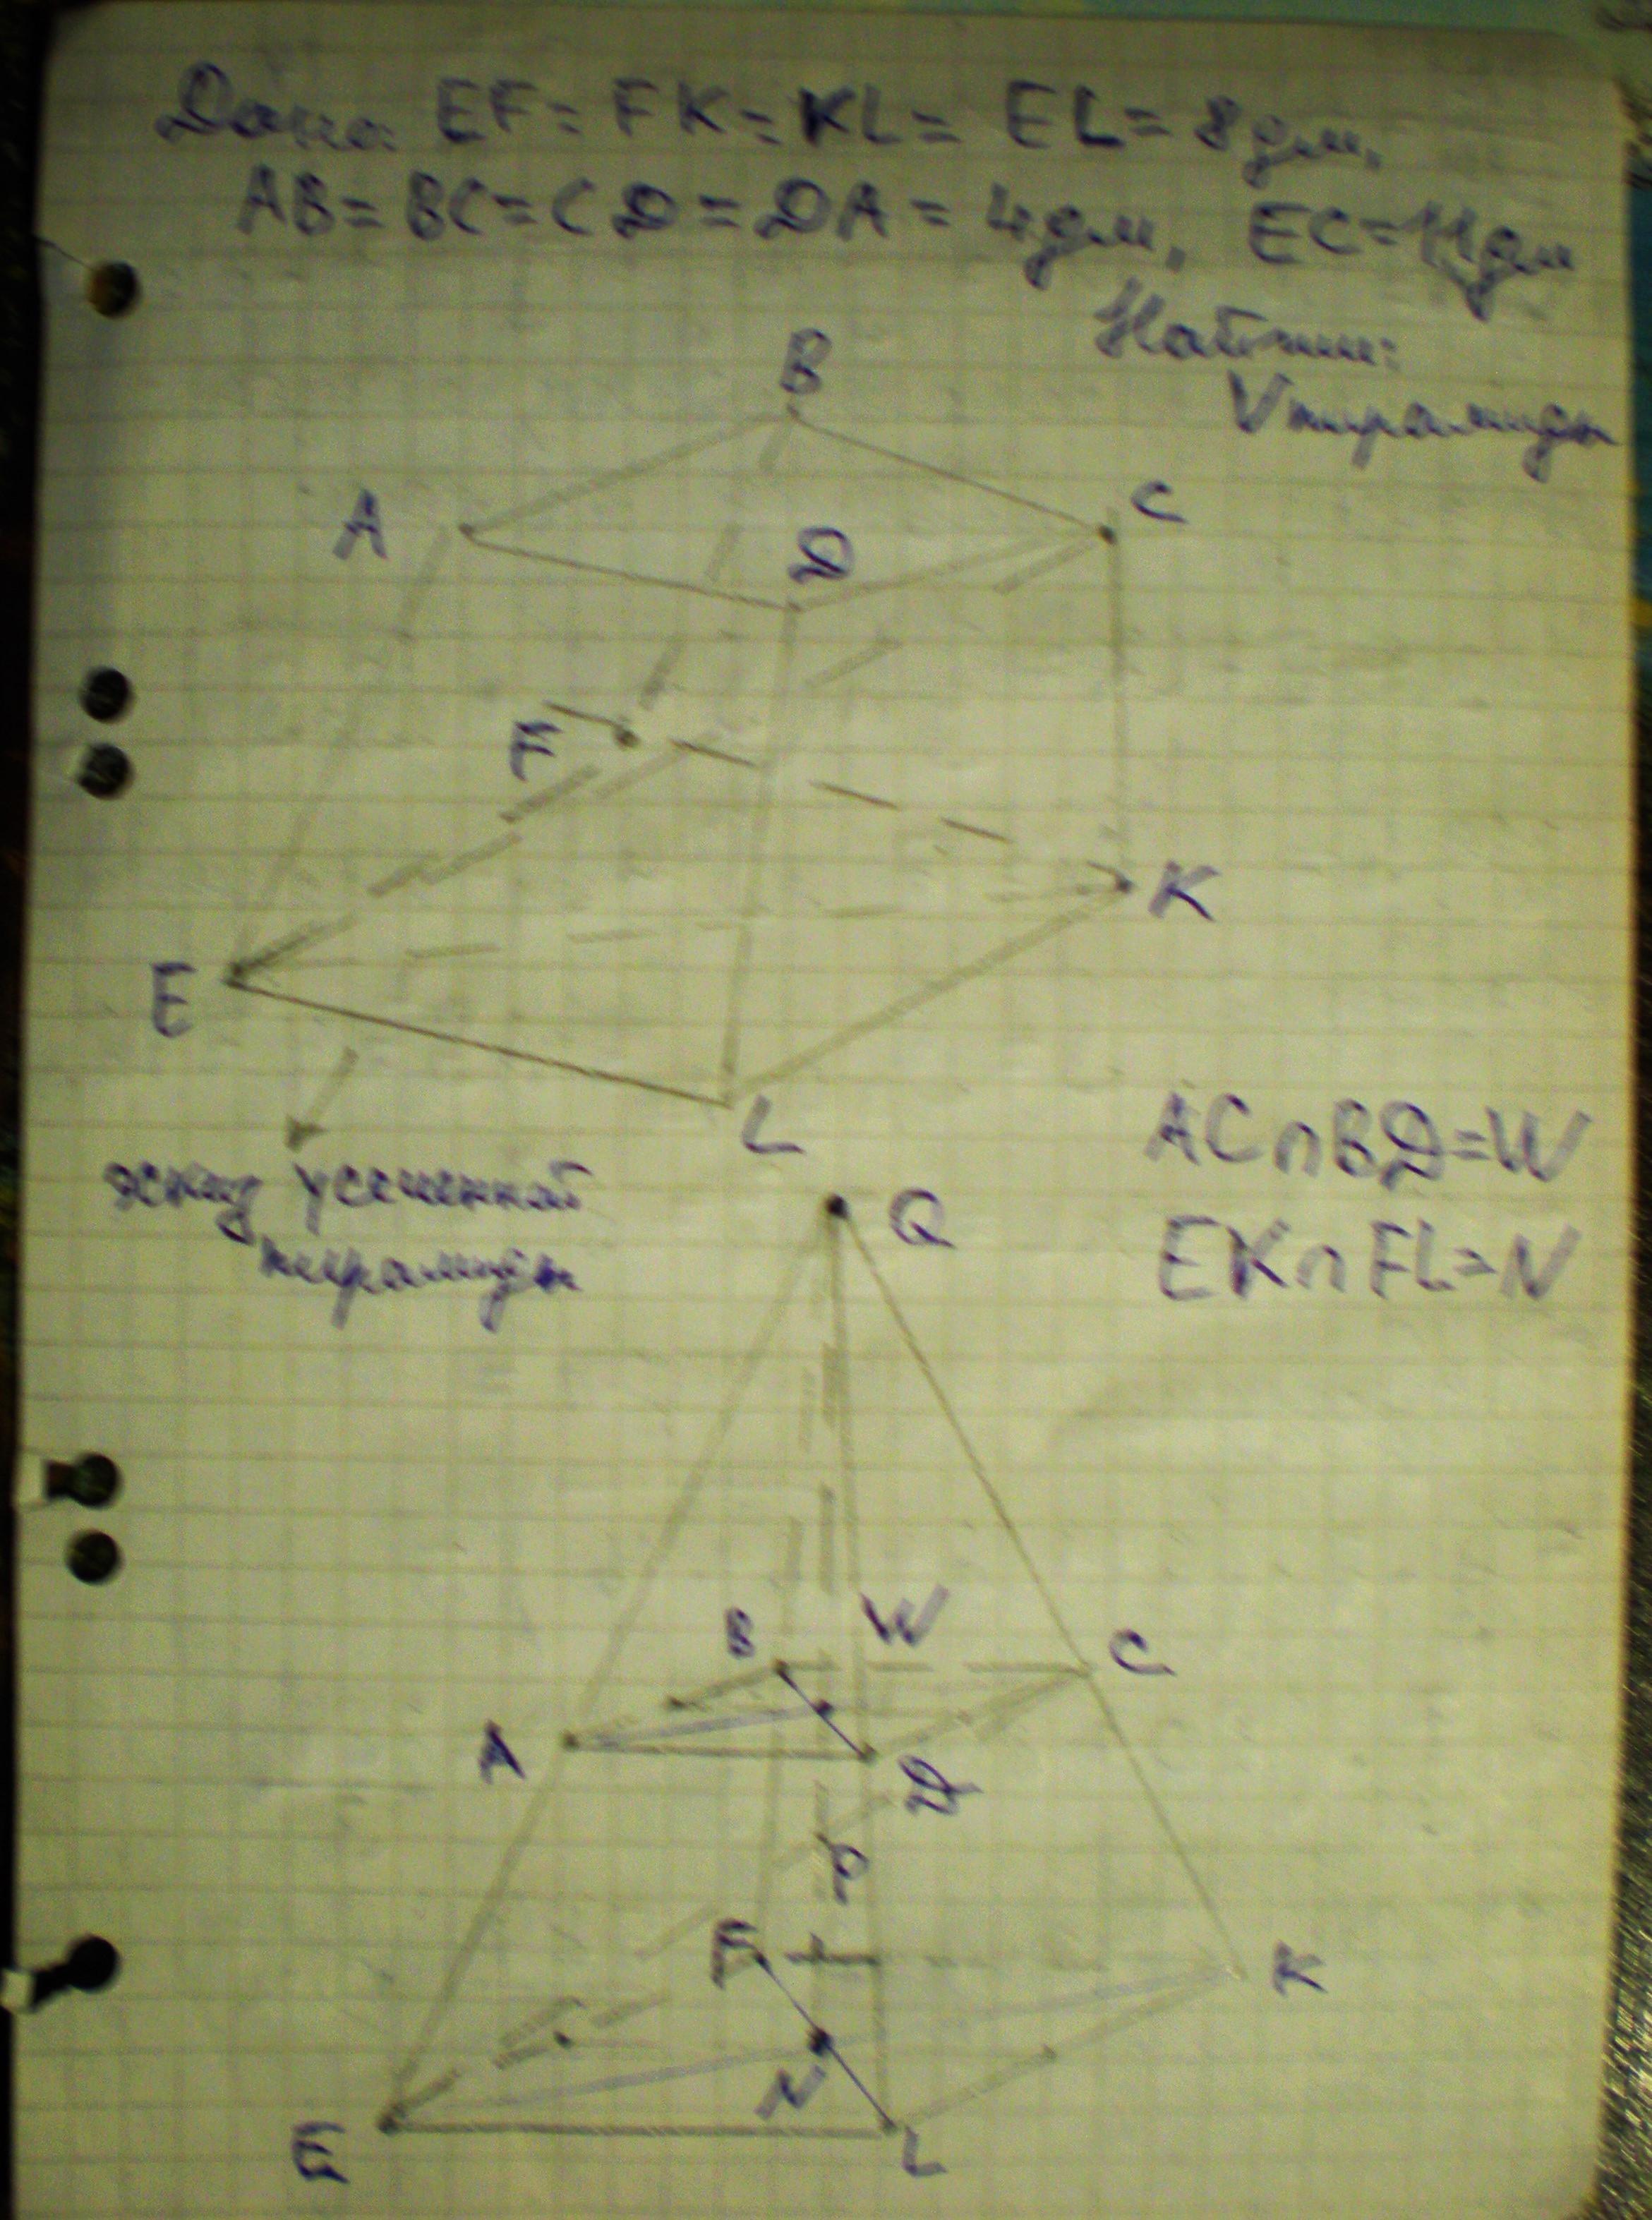 Дано: EF = FK = KL = EL = 8 дм,
AB = BC = CD = DA = 4 дм, EC = 11 дм
Найти:
V пирамиды
B
A
C
D
F
K
E
L
эскиз усеченной
пирамиды
AC∩BD=W
EK∩FL=N
Q
B
W
C
A
D
P
F
K
N
E
L